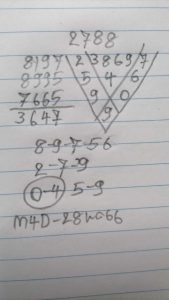 2788
8197 2 3 8 6 9 7
8995 5 4 6
7665 9 0
3647 9
8-9-7-56
2-7-9
0-4 5-9
M4D-28